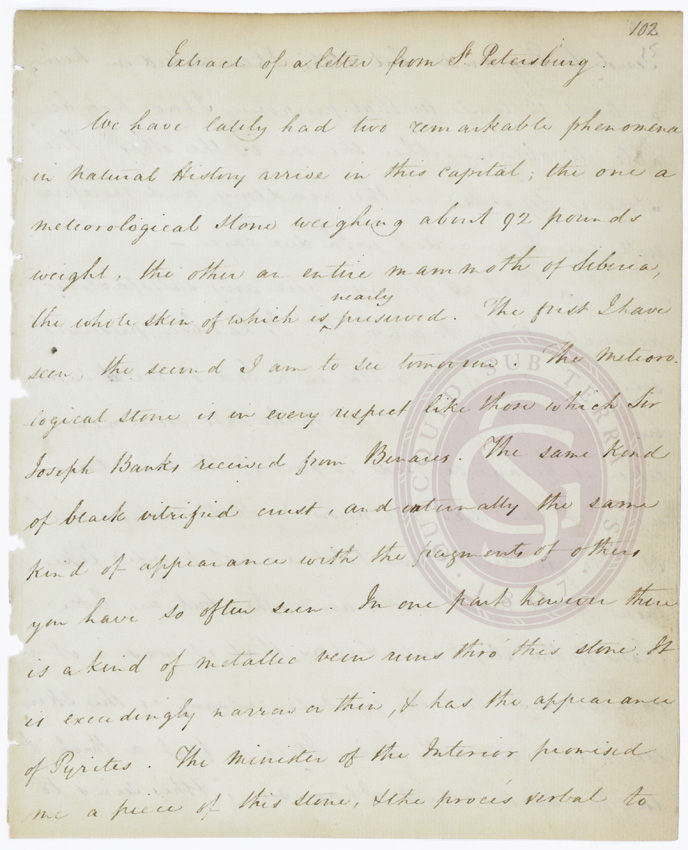 102
Extract of a letter from St Petersburg.
We have lately had two remarkable phenomena
in Natural History arrive in this capital; the one a
meteorological stone weighing about 92 pounds
weight, the other an entire mammoth of Siberia,
nearly
the whole skin of which is ‸ preserved. The first I have
seen, the second I am to see tomorrow. The Meteoro-
logical stone is in every respect like those which Sir
Joseph Banks received from Benares. The same kind
of black vitrified crust, and internally the same
kind of appearance with the fragments of others
you have so often seen. In one part however there
is a kind of metallic vein runs thro' this stone. It
is exceedingly narrow or thin, & has the appearance
of Pyrites. The Minister of the Interior promised
me a piece of this stone, & the procés verbal to
QUICQUID SUB TERRA
GS
1807